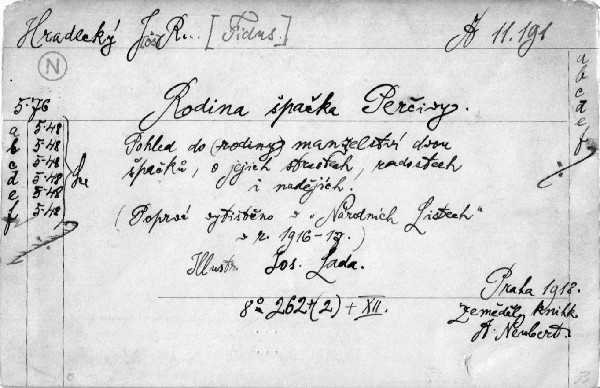 Hradecký Jos. R... [Fidus.] A 11.191
N
5-76
a 5-48
b 5-48
c 5-48
d 5-48
e 5-48
f 5-48
a
b
c
d
e
f
Rodina špačka Perčivy.
Pohled do (rodiny) manželství dvou
špačků, o jejich strastech, radostech
i nadějích.
(Poprvé vytištěno v „Národních Listech“
v r. 1916-17.)
Illustr. Jos. Lada.
Praha 1918.
zeměděl. knihk.
A. Neubert.
8° 262+(2) + XII.